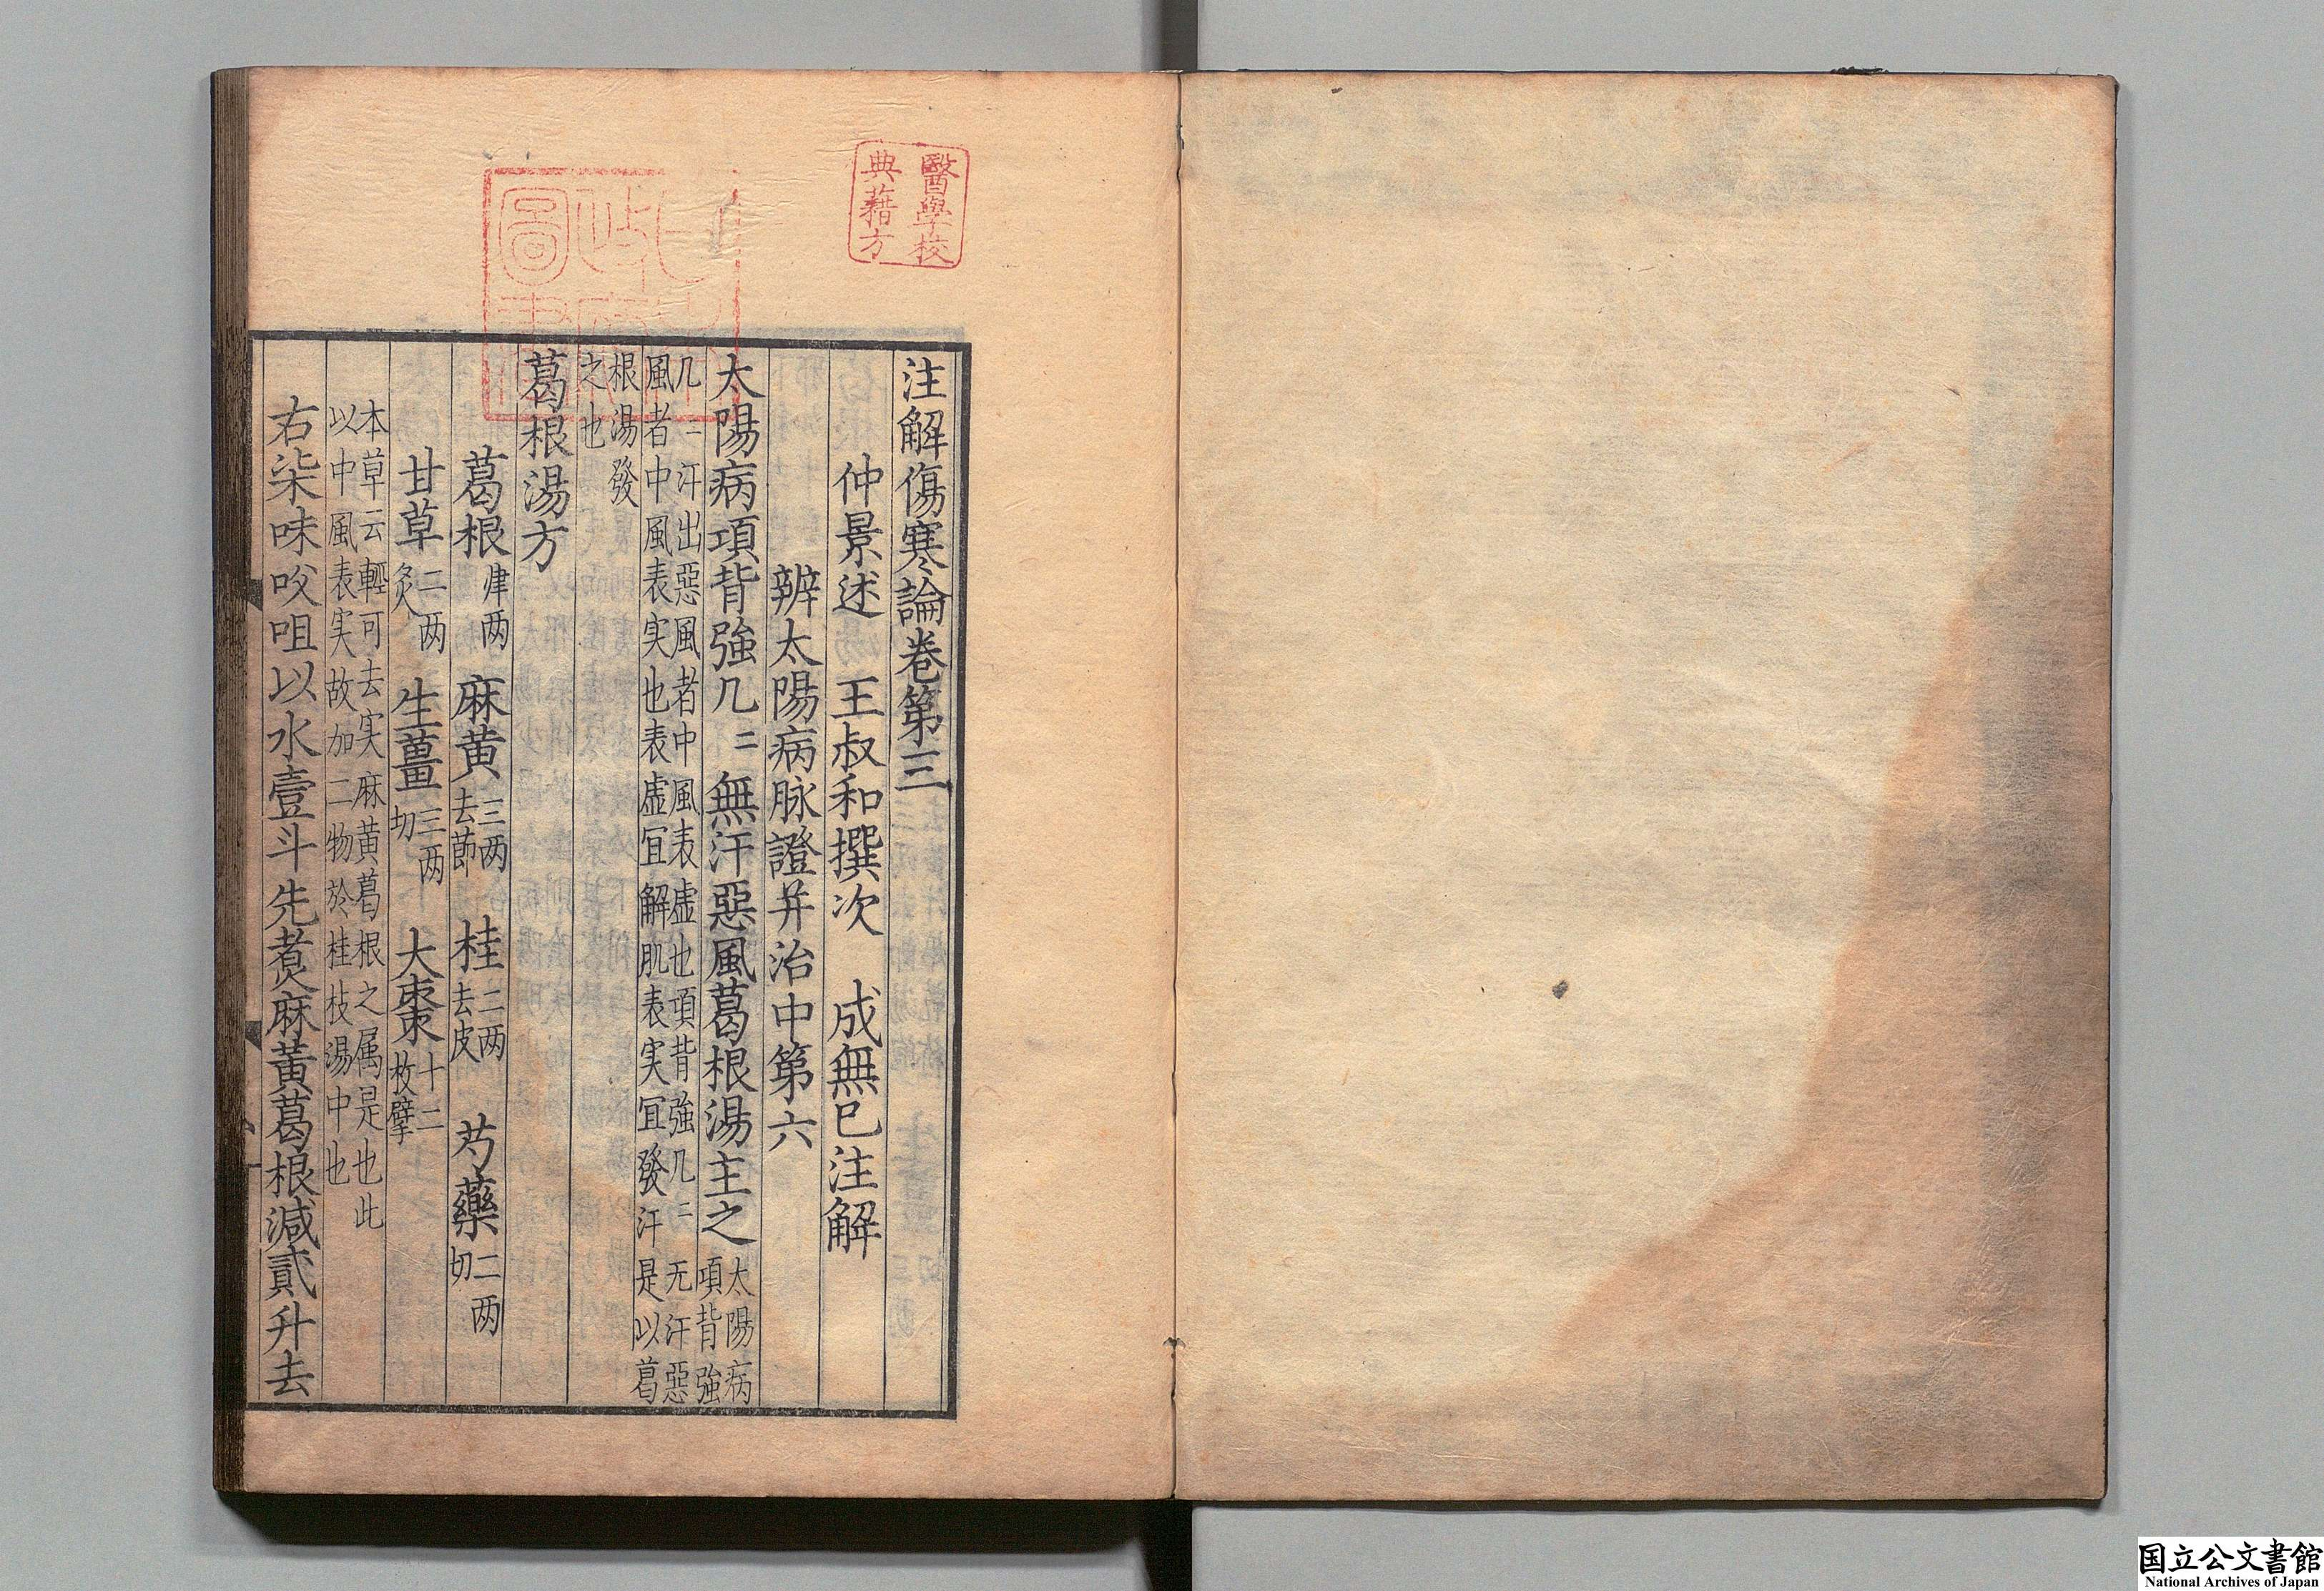 醫學校
典藉方
日本
政府
圖書
注解傷寒論卷第三
仲景述　王叔和撰次　成無巳注解
辨太陽病脉證并治中第六
太陽病項背強几〻無汗惡風葛根湯主之太陽病項背強
几〻汗出惡風者中風表虛也項背強几〻无汗惡
風者中風表実也表虛冝解肌表実冝發汗是以葛
根湯發
之也
葛根湯方
葛根肆两　麻黄三两去莭　桂二两去皮　芍藥二两切
甘草二两炙　生薑三两切　大棗十二枚擘
本草云輕可去実麻黄葛根之属是也此
以中風表実故加二物於桂枝湯中也
右柒味㕮咀以水壹斗先煮麻黃葛根減貳升去
国立公文書館
National Archives of Japan